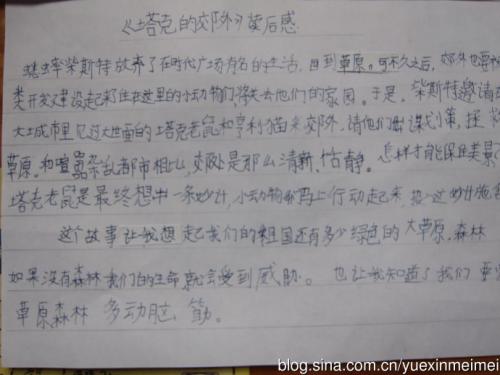 《塔克的郊外》读后感
蟋蟀柴斯特放弃了在时代广场有名的生活,回到草原。可不久之后,郊外也要
类开发建设起来住在这里的小动物们,将失去他们的家园。于是,柴斯特邀请
大城市里见过大世面的塔克老鼠和亨利猫来郊外,请他们出谋划策,
草原。和喧嚣杂乱都市相比,郊外是那么清新、恬静。怎样才能保住美景
塔克老鼠是最终想出一条妙计,小动物们马上行动起来,把这妙计
这个故事让我想起我们的祖国还有多少绿色的大草原、森林
如果没有森林我们的生命就会受到威胁。也让我知道了我们要
草原森林 多动脑筋。
blog.sina.com.cn/yuexinmeimei